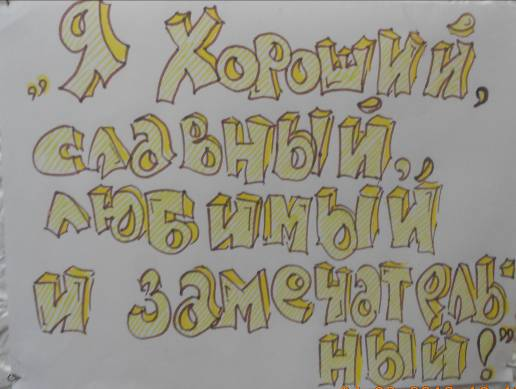 „Я Хороший,
славный,
любимый
и замечатель-
ный!”